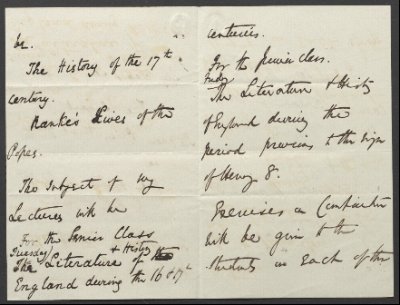 be.
The History of the 17th
century.
Ranke's Lives of the
Popes.
The subject of my
Lectures will be
For the Senior Class
Tuesday
The Literature & History of the
England during the 16 & 17th
centuries.
For the Junior class.
The Literature & Histy
of England during the
period previous to the reign
of Henry 8.
Exercises in Composition
will be given to the
Students in each of the